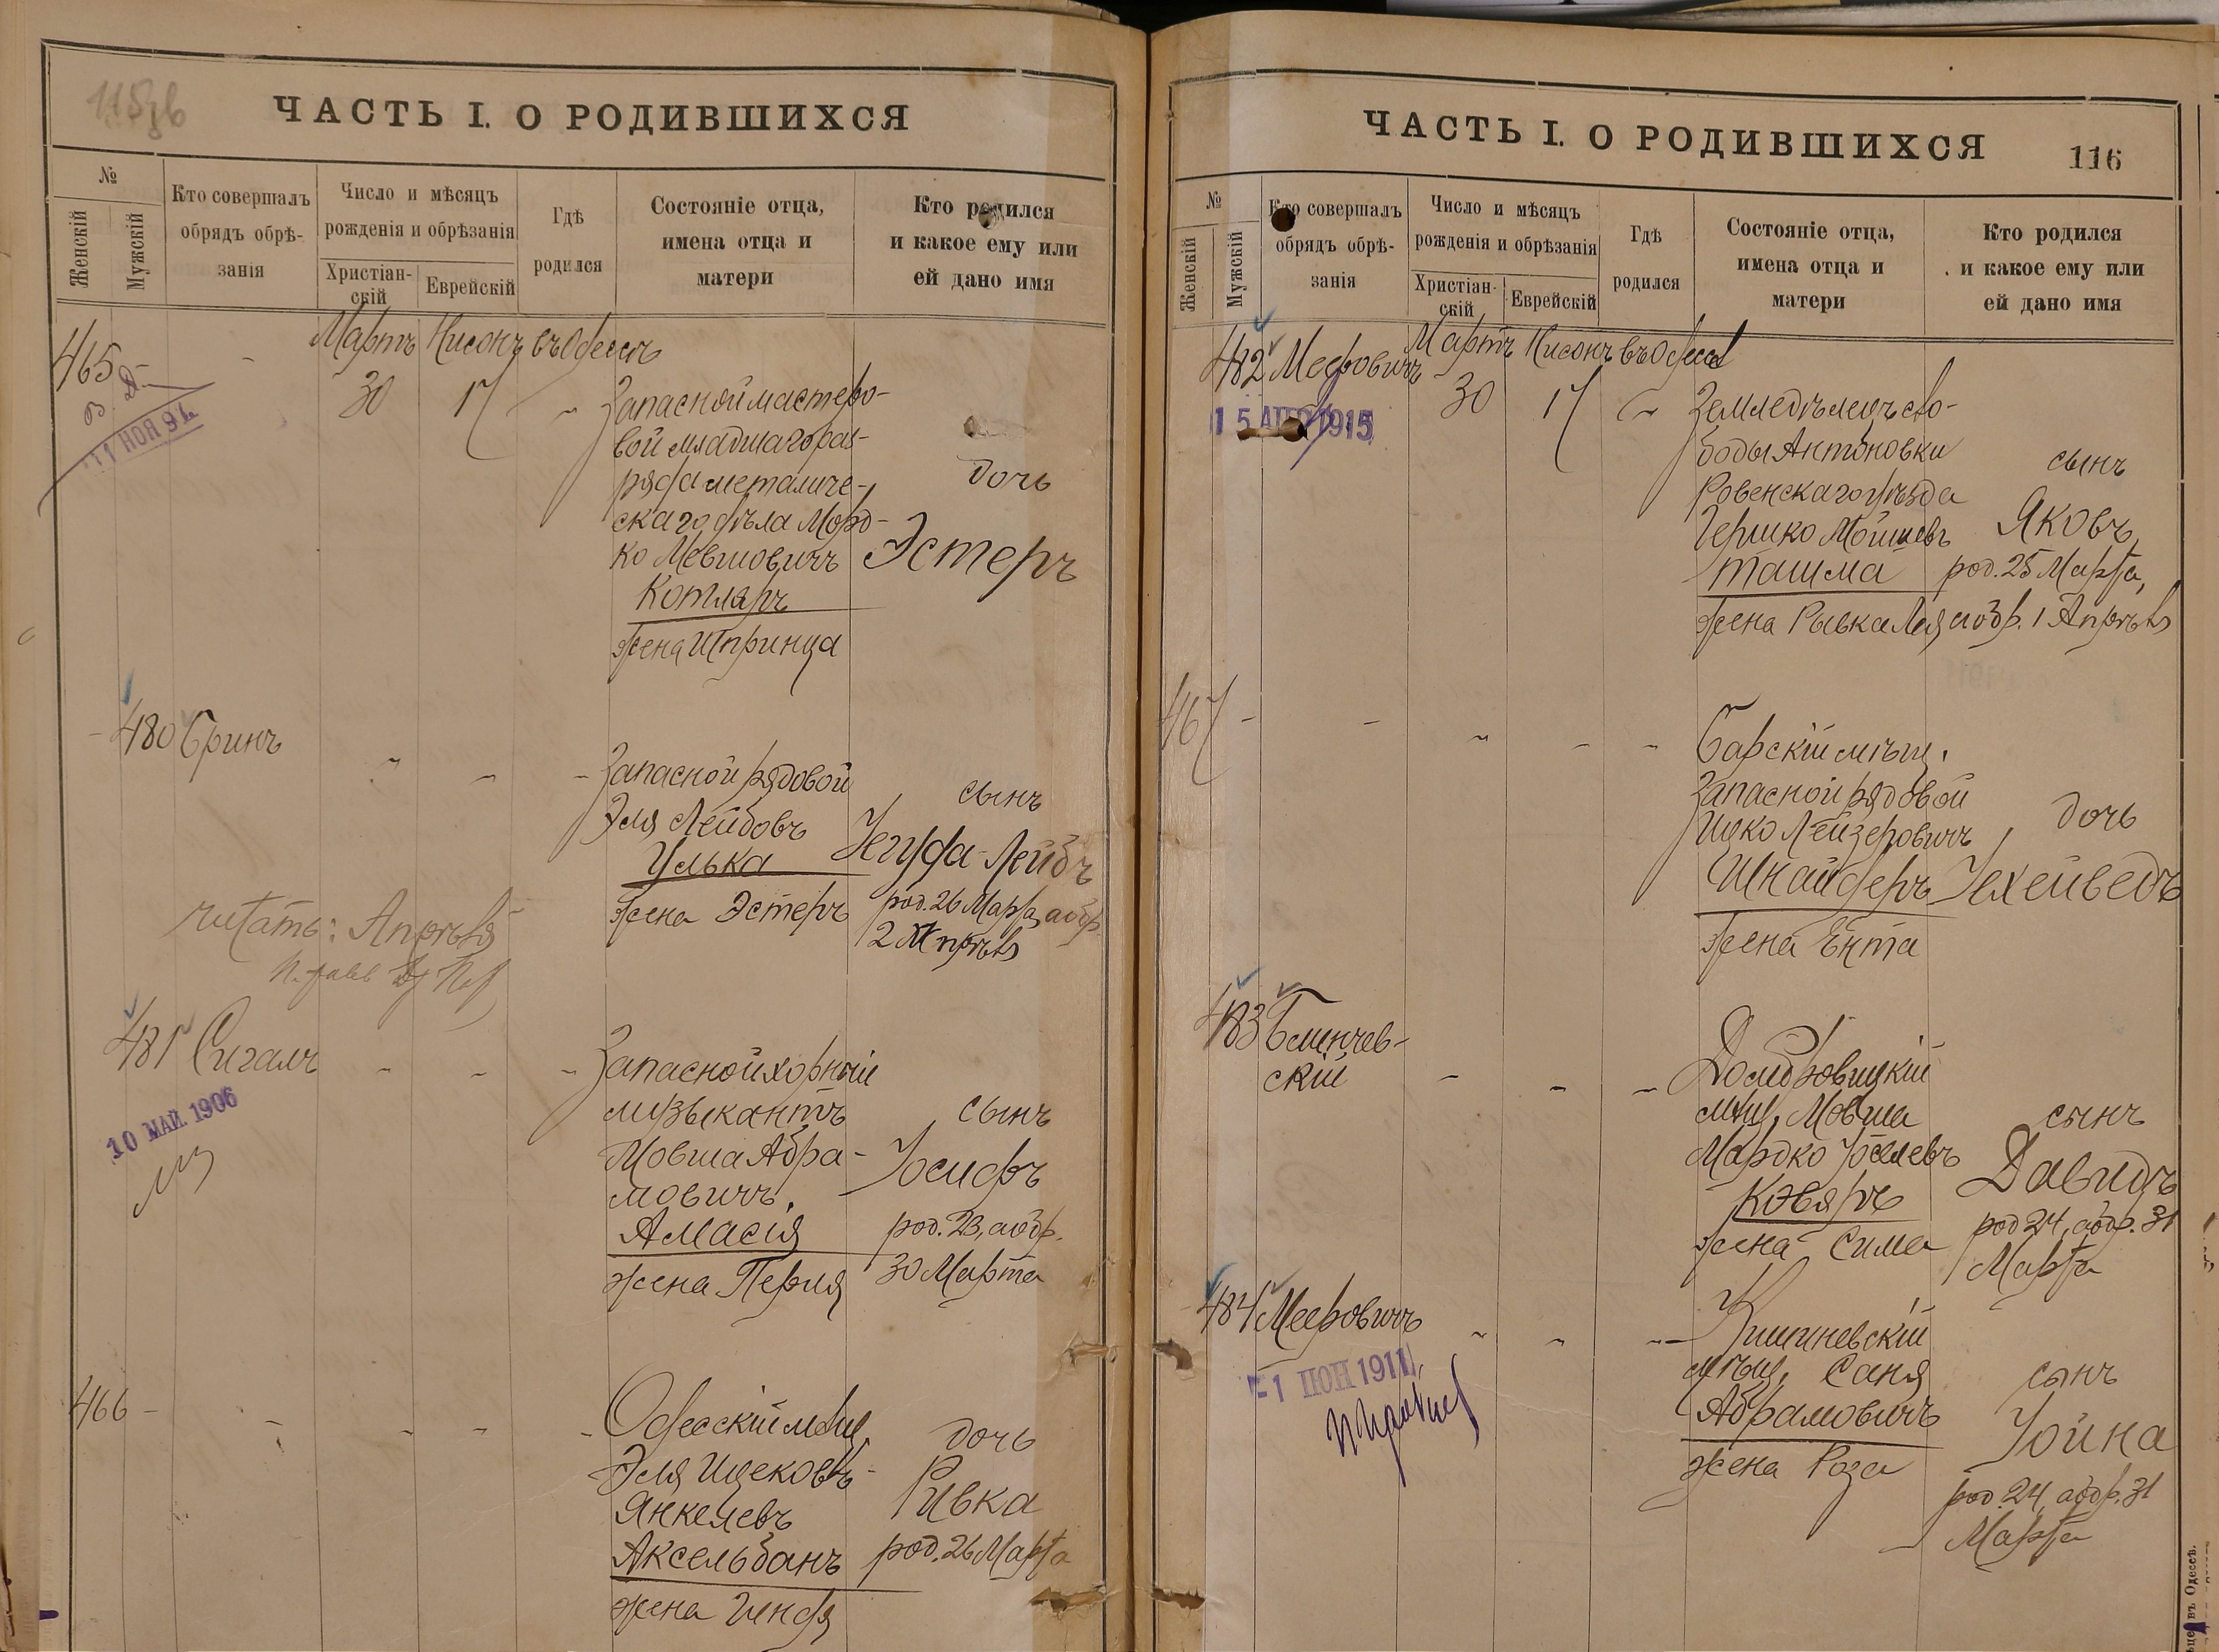 ЧАСТЬ I. О РОДИВШИХСЯ
№
Женскій
Мужскій
Кто совершалъ
обрядъ обрѣ-
занія
Число и мѣсяцъ
рожденія и обрѣзанія
Христіан-
скій
Еврейскій
Гдѣ
родился
Состояніе отца,
имена отца и
матери
Кто родился
и какое ему или
ей дано имя
465 - - Мартъ Нисонъ въ Одессѣ
30 17 Запасной мастеро-
вой младшаго раз-
ряда металиче-
скаго дѣла Морд-
ко Мевшовичъ
Котляръ
жена Шпринца
дочь
Эстеръ
480 Гринъ
Запасной рядовой
Эля Лейбовъ
Улька
жена Эстеръ
сынъ
Іегуда-Лейбъ
род. 26 Марта, а обр.
2 Апрѣля
читать: Апрѣля
481 Сигалъ
10 МАЙ. 1906
Запасной хорный
музыкантъ
Мовша Абра-
мовичъ
Амасія
жена Перля
сынъ
Іосифъ
род. 23, а обр.
30 Марта
466 -
Одесскій мѣщ.
Эля Ицековъ-
Янкелевъ
Аксельбанъ
жена Гендя
дочь
Ривка
род. 26 Марта
ЧАСТЬ I. О РОДИВШИХСЯ
116
№
Женскій
Мужскій
Кто совершалъ
обрядъ обрѣ-
занія
Число и мѣсяцъ
рожденія и обрѣзанія
Христіан-
скій
Еврейскій
Гдѣ
родился
Состояніе отца,
имена отца и
матери
Кто родился
и какое ему или
ей дано имя
482 Меерович Мартъ Нисонъ въ Одессѣ
15 АПР 1915
30 17 Земледѣлецъ сло-
боды Антоновки
Ровенскаго уѣзда
Гершко Мошковъ
Ташма
жена Рывка Лея
сынъ
Яковъ,
род. 25 Марта,
а обр. 1 Апрѣля
467 - -
Барскій мѣщ.
Запасной рядовой
Ицко Лейзеровичъ
Шнайдеръ
жена Ента
дочь
Іехейведъ
483 Блинчев-
скій
Домбровицкій
мѣщ. Мовша
Мардко Іоселевъ
Ковяръ
жена Сима
сынъ
Давидъ
род 24, а обр. 31
Марта
484 Мееровичъ
1 ІЮН 1911
Кишиневскій
мѣщ. Саня
Абрамовичъ
жена Роза
сынъ
Іойна
род. 24, а обр. 31
Марта
въ Одессѣ.